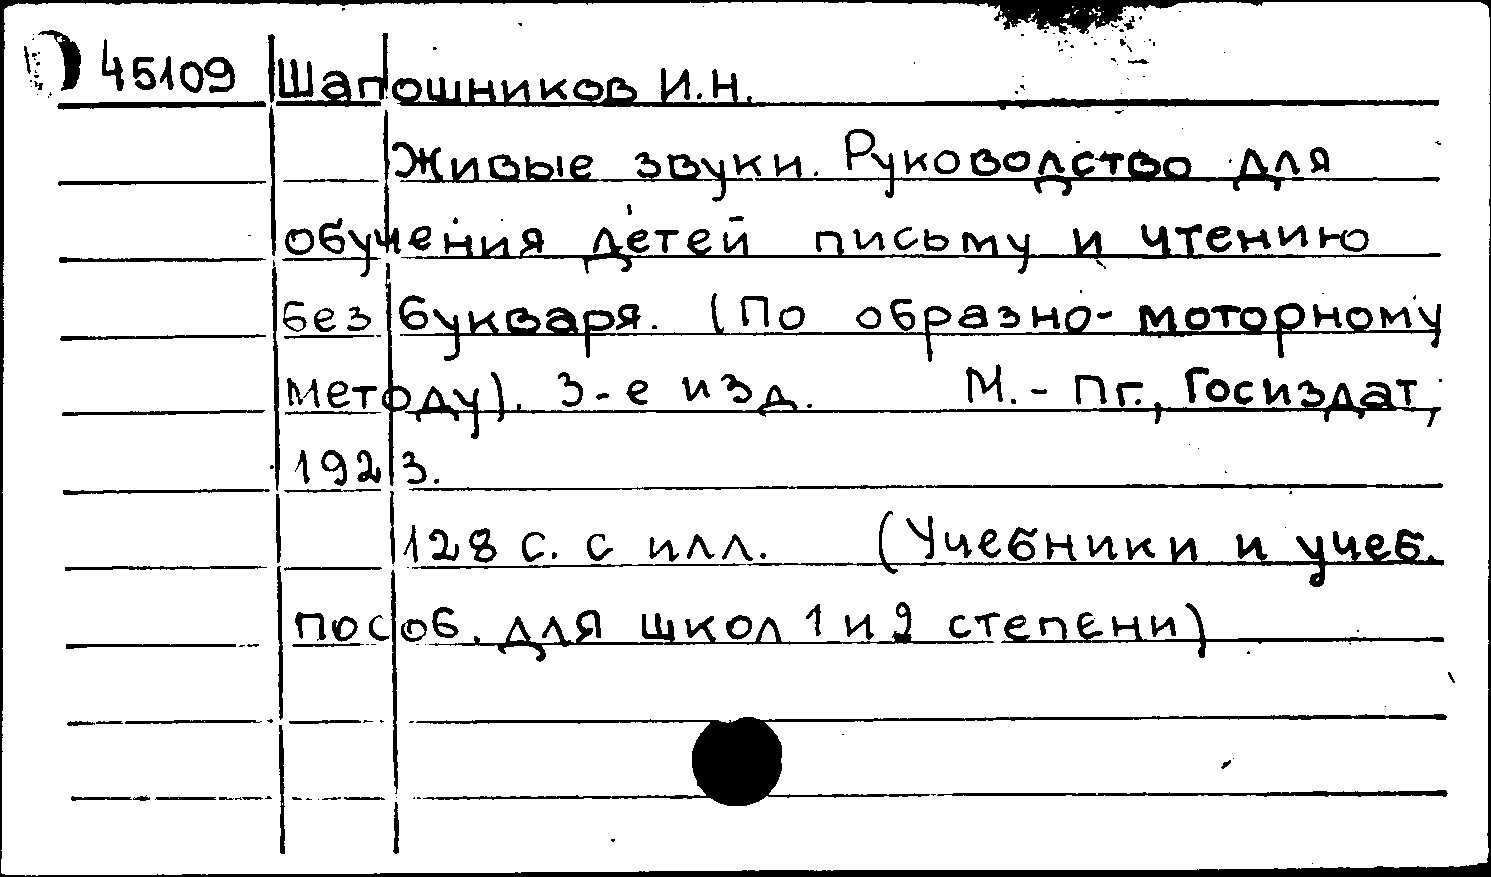 45109 Шапошников И.Н.
Живые звуки. Руководство для
обучения детей письму и чтению
без букваря. (По образно-моторному
методу). 3-е изд. М.-Пг., Госиздат,
1923.
128 с. с илл. (Учебники и учеб.
пособ. для школ 1 и 2 степени)